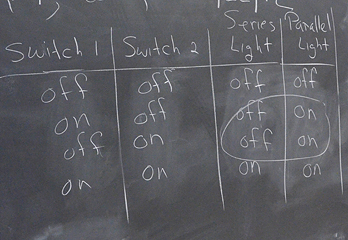 Switch 1 Switch 2 Series Light Parallel Light
off off off off
on off off on
off on off on
on on on on